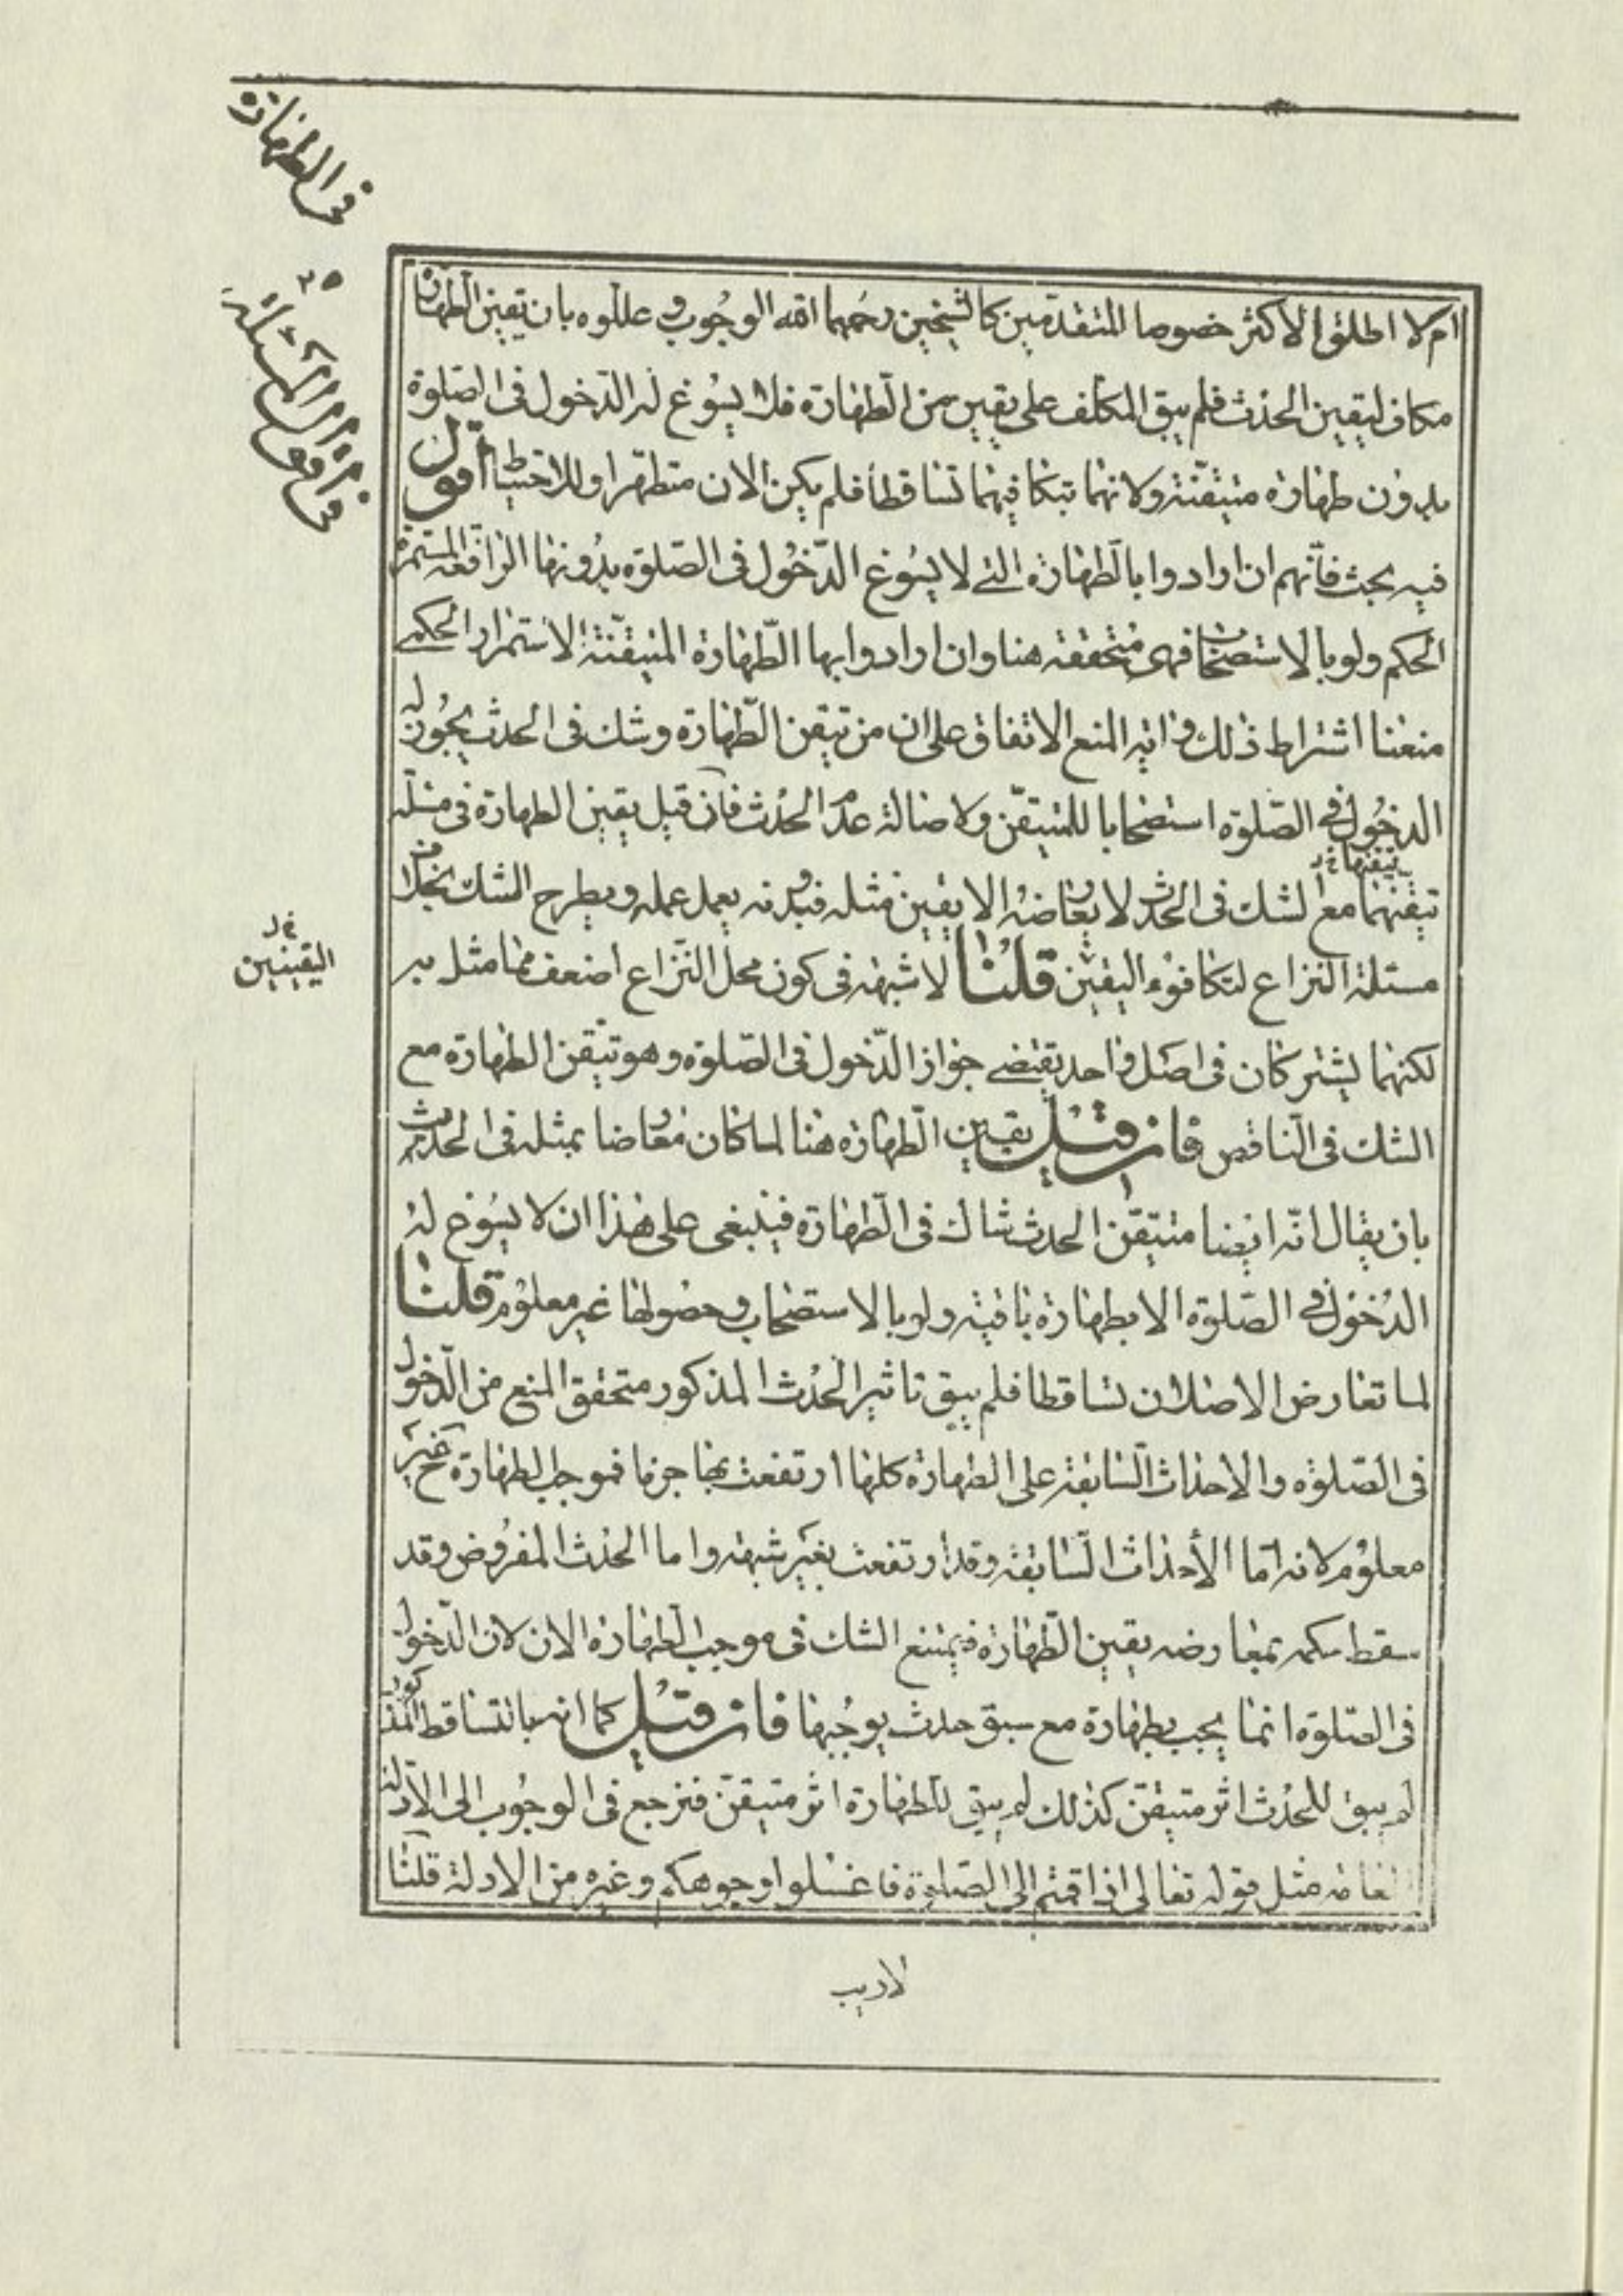 في الطهارة
٢٥
ام لا اطلق الاكثر خصوصا المتقدمين كالشيخين رحمهما الله الوجوب وعللوه بان تيقن الطهارة
مكاف ليقين الحدث فلم يبق المكلف على يقين من الطهارة فلا يسوغ له الدخول في الصلوة
بدون طهارة متيقنة ولانهما بتكافيهما تساقطا فلم يكن الان متطهرا وللاحتياط اقول
فيه بحث فانهم ان ارادوا بالطهارة التي لا يسوغ الدخول في الصلوة بدونها الرافعة المستمرة
الحكم ولو بالاستصحاب فهي متحققة هنا وان ارادوا بها الطهارة المتيقنة الاستمرار الحكمي
منعنا اشتراط ذلك وآية المنع الاتفاق على ان من تيقن الطهارة وشك في الحدث يجوز له
الدخول في الصلوة استصحابا للمتيقن ولاصالة عدم الحدث فان قيل يقين الطهارة في مسئلة
تيقنها خ ل
تيقنهما مع الشك في الحدث لا يعارضه الا يقين مثله فبدونه يعمل عمله ويطرح الشك بخلاف
مسئلة النزاع لتكافوء اليقين قلنا لا شبهة في كون محل النزاع اضعف مما مثل به
خ ل
اليقينين
لكنهما يشتركان في اصل واحد يقتضي جواز الدخول في الصلوة وهو تيقن الطهارة مع
الشك في الناقض فان قيل يقين الطهارة هنا لما كان معارضا بمثله في الحدث
بان يقال انه ايضا متيقن الحدث شاك في الطهارة فينبغي على هذا ان لا يسوغ له
الدخول في الصلوة الا بطهارة باقية ولو بالاستصحاب وحصولها غير معلوم قلنا
لما تعارض الاصلان تساقطا فلم يبق تاثير الحدث المذكور متحقق المنع من الدخول
في الصلوة والاحداث السابقة على الطهارة كلها ارتفعت بها جزما فموجب الطهارة ح غير
معلوم لانه اما الأحداث السابقة وقد ارتفعت بغير شبهة واما الحدث المفروض وقد
سقط حكمه بمعارضه يقين الطهارة فيمتنع الشك في موجب الطهارة الان لان الدخول
في الصلوة انما يجب بطهارة مع سبق حدث يوجبها فان قيل كما انه بالتساقط المذكور
لم يبق للحدث اثر متيقن كذلك لم يبق للطهارة اثر متيقن فنرجع في الوجوب الى الادلة
العامة مثل قوله تعالى اذا قمتم الى الصلوة فاغسلوا وجوهكم وغيره من الادلة قلنا
لاريب